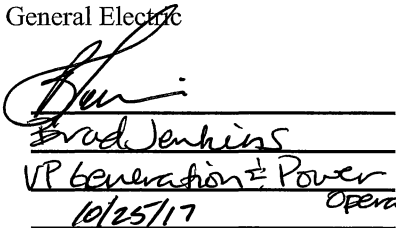 General Electric
Brad Jenkins
VP Generation & Power
Opera
10/25/17